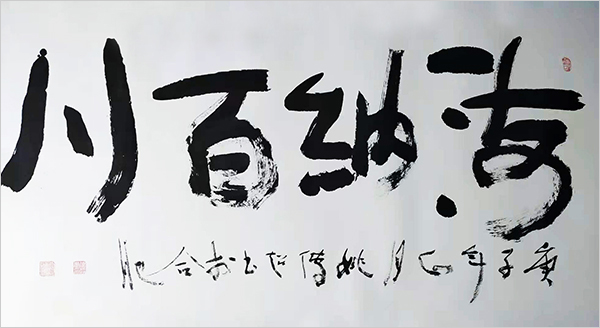 海纳百川
庚子年月姚书于合肥